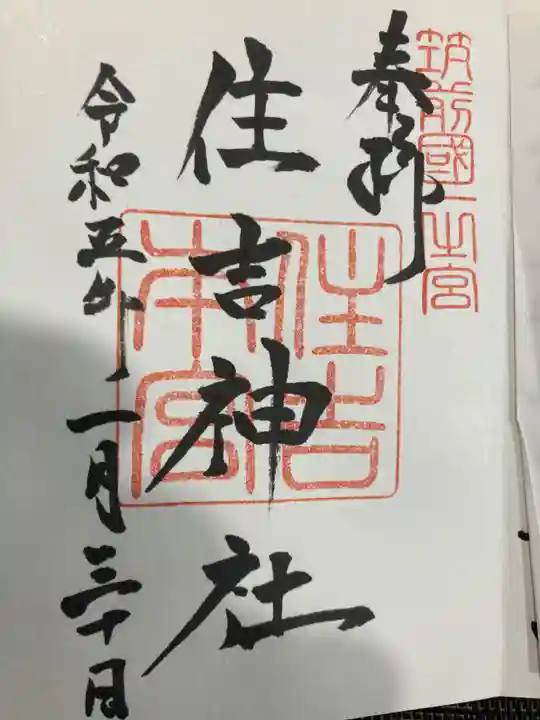 筑前國一之宮
奉拝
住吉神社
住吉
令和五年二月三十日